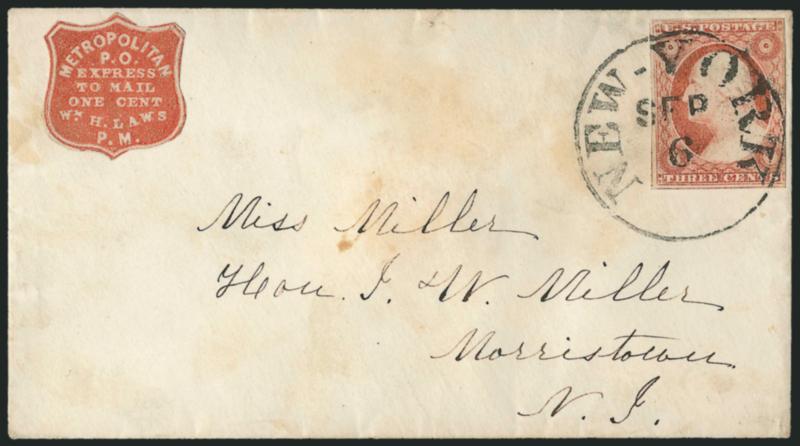 METROPOLITAN
P.O.
EXPRESS
TO MAIL
ONE CENT
Wm H. LAWS
P.M.
U.S. POSTAGE
THREE CENTS
NEW-YORK
SEP
6
Miss Miller
Hon. J. W. Miller
Morristown
N. J.